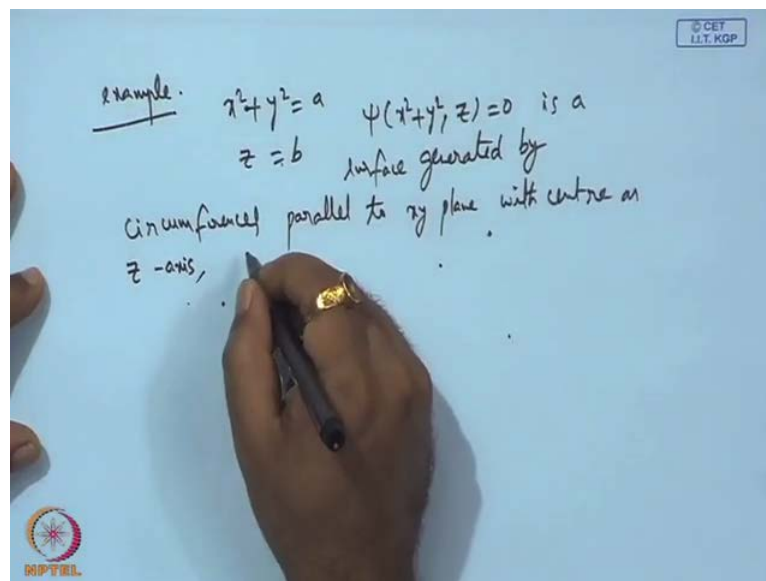 © CET
I.I.T. KGP
example. x²+y²= a ψ(x²+y², z)=0 is a
z = b surface generated by
circumferences parallel to xy plane with centre on
z -axis,
NPTEL